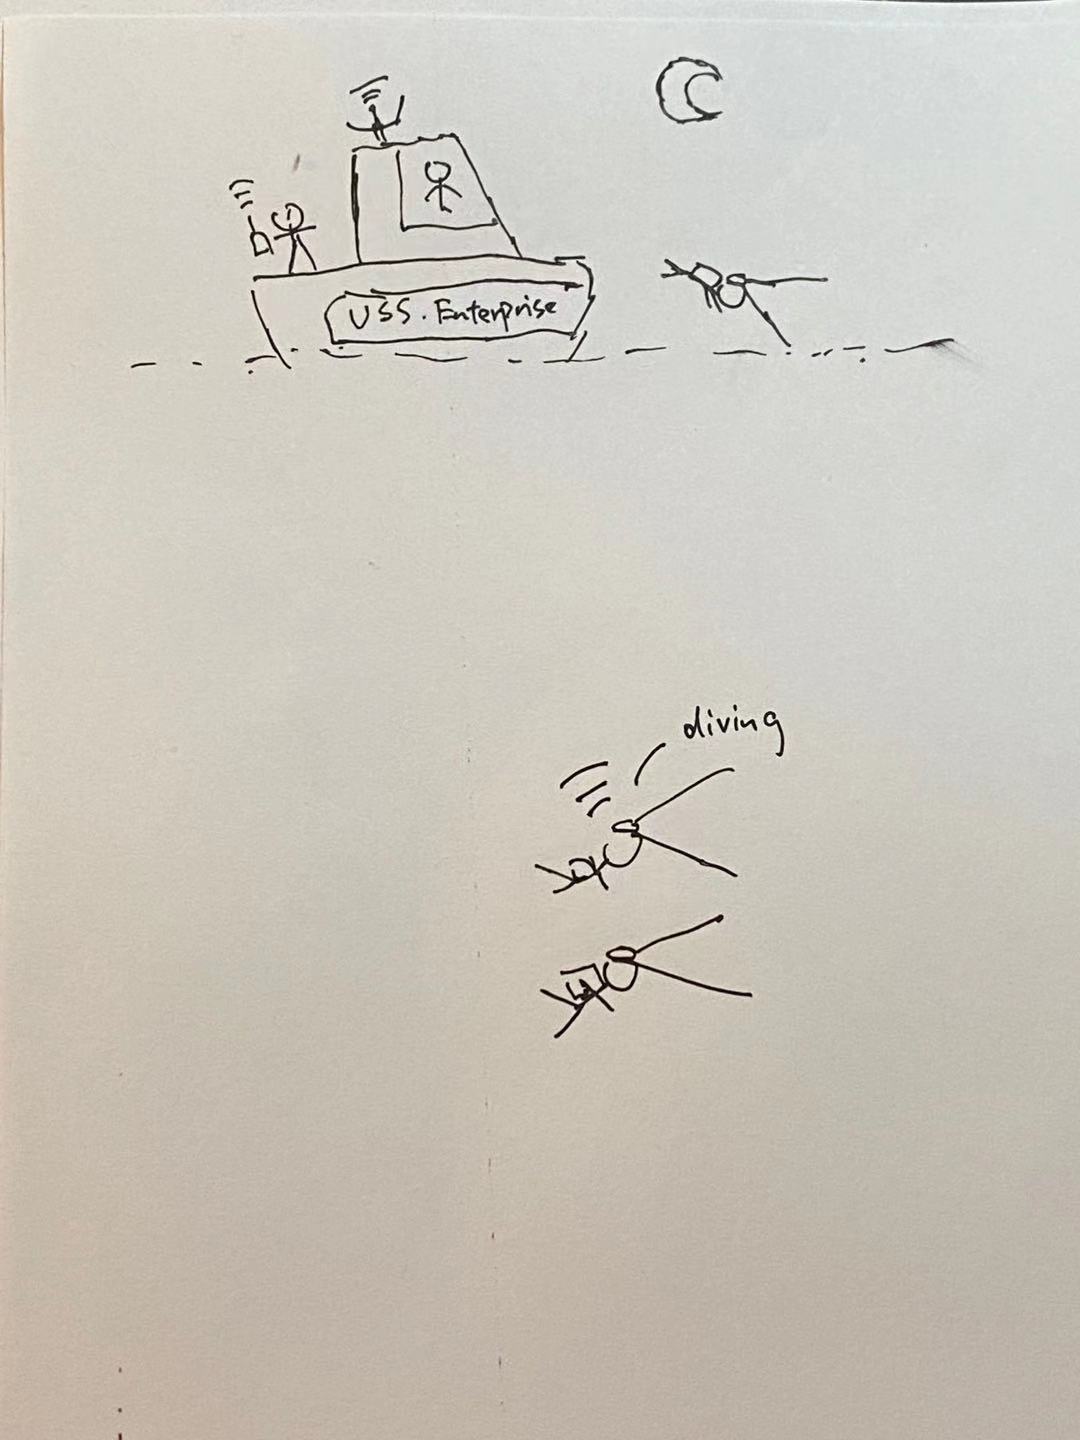 USS. Enterprise
diving